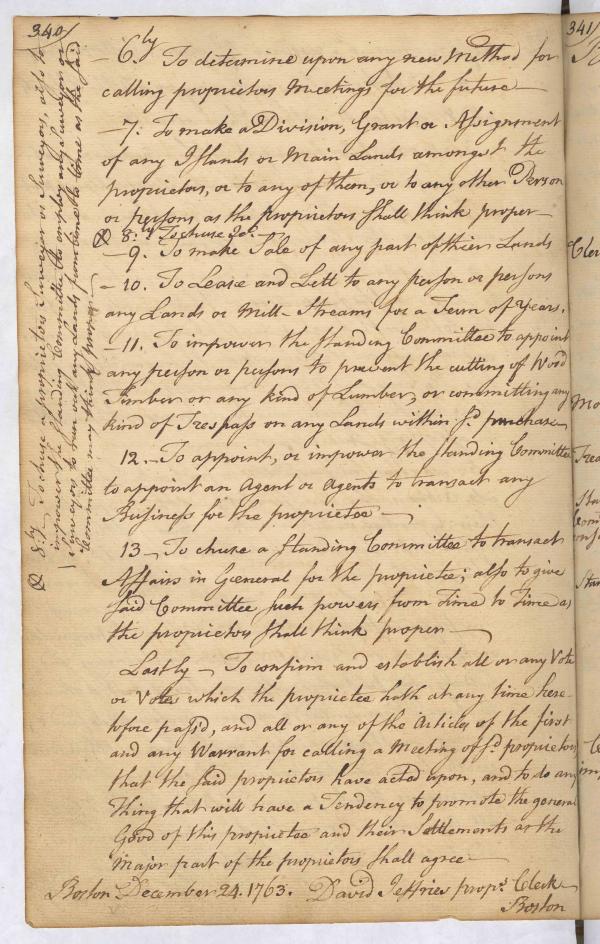 340/
— 6.ly To determine upon any new Method for
calling proprietors Meetings for the future —
— 7. To make a Division, Grant or Assignment
of any Islands or Main Lands amongst the
proprietors, or to any of them, or to any other Person
or persons, as the proprietors Shall think proper —
8.ly To chuse &c. —
— 9. To make Sale of any part of their Lands
— 10. To Lease and Lett to any person or persons
any Lands or Mill-Streams for a Term of Years.
— 11. To impower the standing Committee to appoint
any person or persons to prevent the cutting of Wood
Timber or any kind of Lumber, or committing any
kind of Trespass on any Lands within sd. purchase —
12. — To appoint, or impower the standing Committee
to appoint an Agent or Agents to transact any
Business for the proprietee —
13 — To chuse a standing Committee to transact
Affairs in General for the proprietee; also to give
said Committee such powers from Time to Time as
the proprietors Shall think proper —
Lastly — To confirm and establish all or any Vote
or Votes which the proprietee hath at any time here-
tofore pass'd, and all or any of the Articles of the first
and any Warrant for calling a Meeting of sd. proprietors
that the said proprietors have acted upon, and to do any
Thing that will have a Tendency to promote the general
Good of this proprietee and their Settlements as the
Major part of the proprietors shall agree —
Boston December 24. 1763. David Jeffries props. Clerk
Boston
8.ly To chuse a proprietors Surveyor or Surveyors, also to
impower the standing Committee to employ any Surveyor or
Surveyors to run out any Lands from time to time as the said
Committee may think proper —
341/
Cler